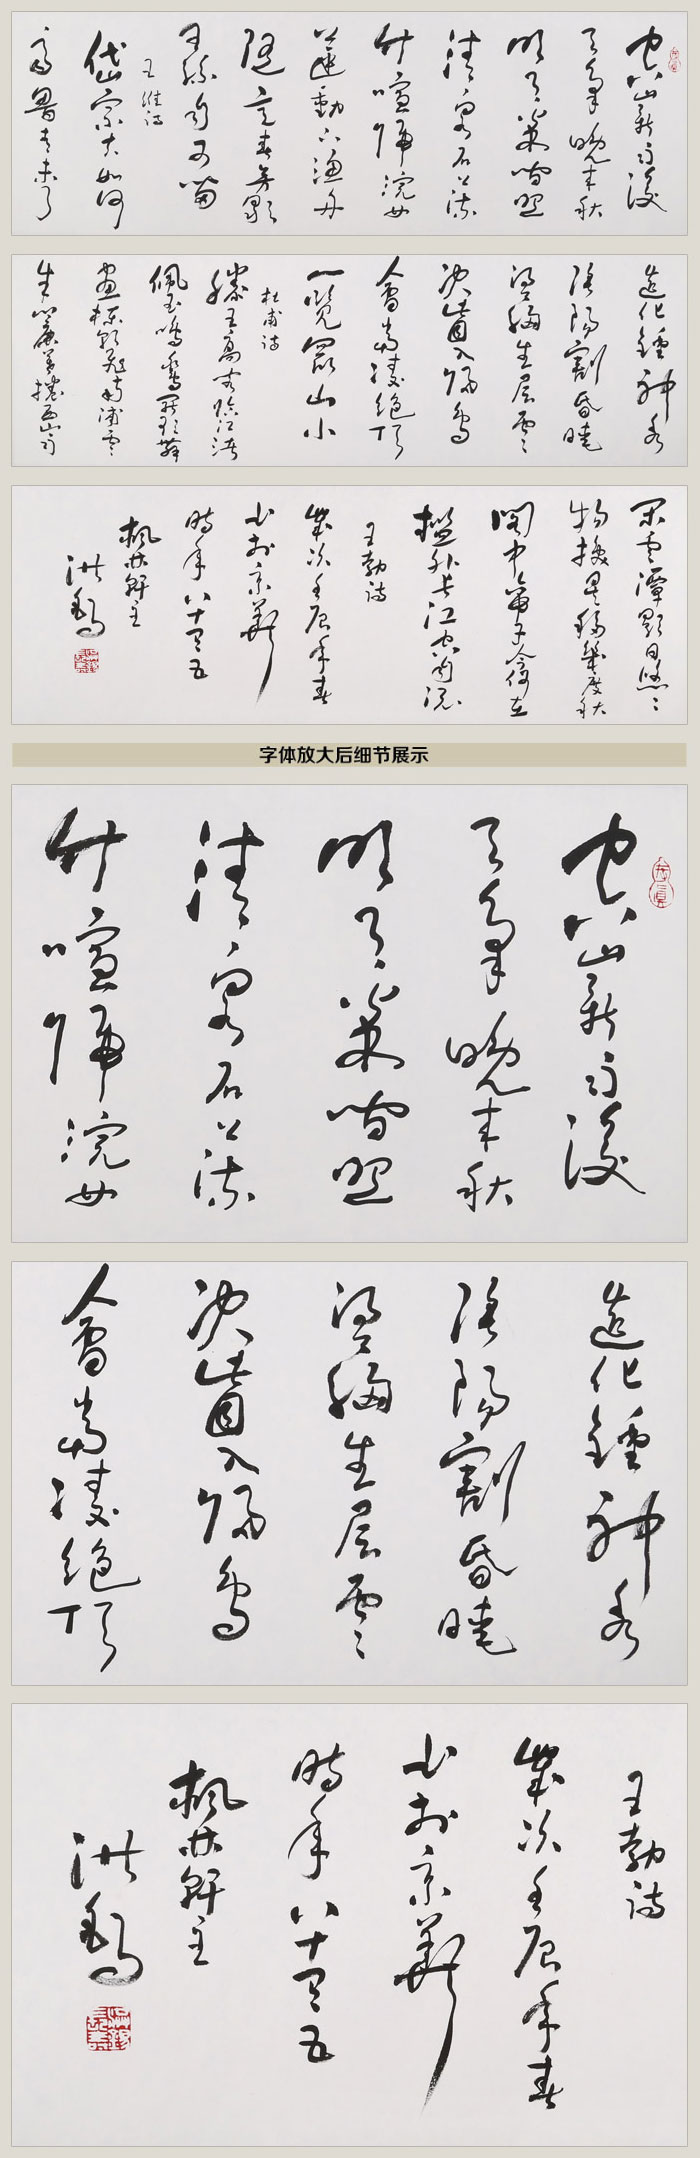 空山新雨後
天氣晚來秋
明月松間照
清泉石上流
竹喧歸浣女
蓮動下漁舟
隨意春芳歇
王孫自可留
王維詩
岱宗夫如何
齊魯青未了
造化鍾神秀
陰陽割昏曉
盪胸生層雲
決眥入歸鳥
會當凌絕頂
一覽眾山小
杜甫詩
滕王高閣臨江渚
佩玉鳴鸞罷歌舞
畫棟朝飛南浦雲
朱簾暮捲西山雨
閑雲潭影日悠悠
物換星移幾度秋
閣中帝子今何在
檻外長江空自流
王勃詩
歲次壬辰年春
書於京華
時年八十又五
楓林軒主
字体放大后细节展示
空山新雨後
天氣晚來秋
明月松間照
清泉石上流
竹喧歸浣女
造化鍾神秀
陰陽割昏曉
盪胸生層雲
決眥入歸鳥
會當凌絕頂
王勃詩
歲次壬辰年春
書於京華
時年八十又五
楓林軒主